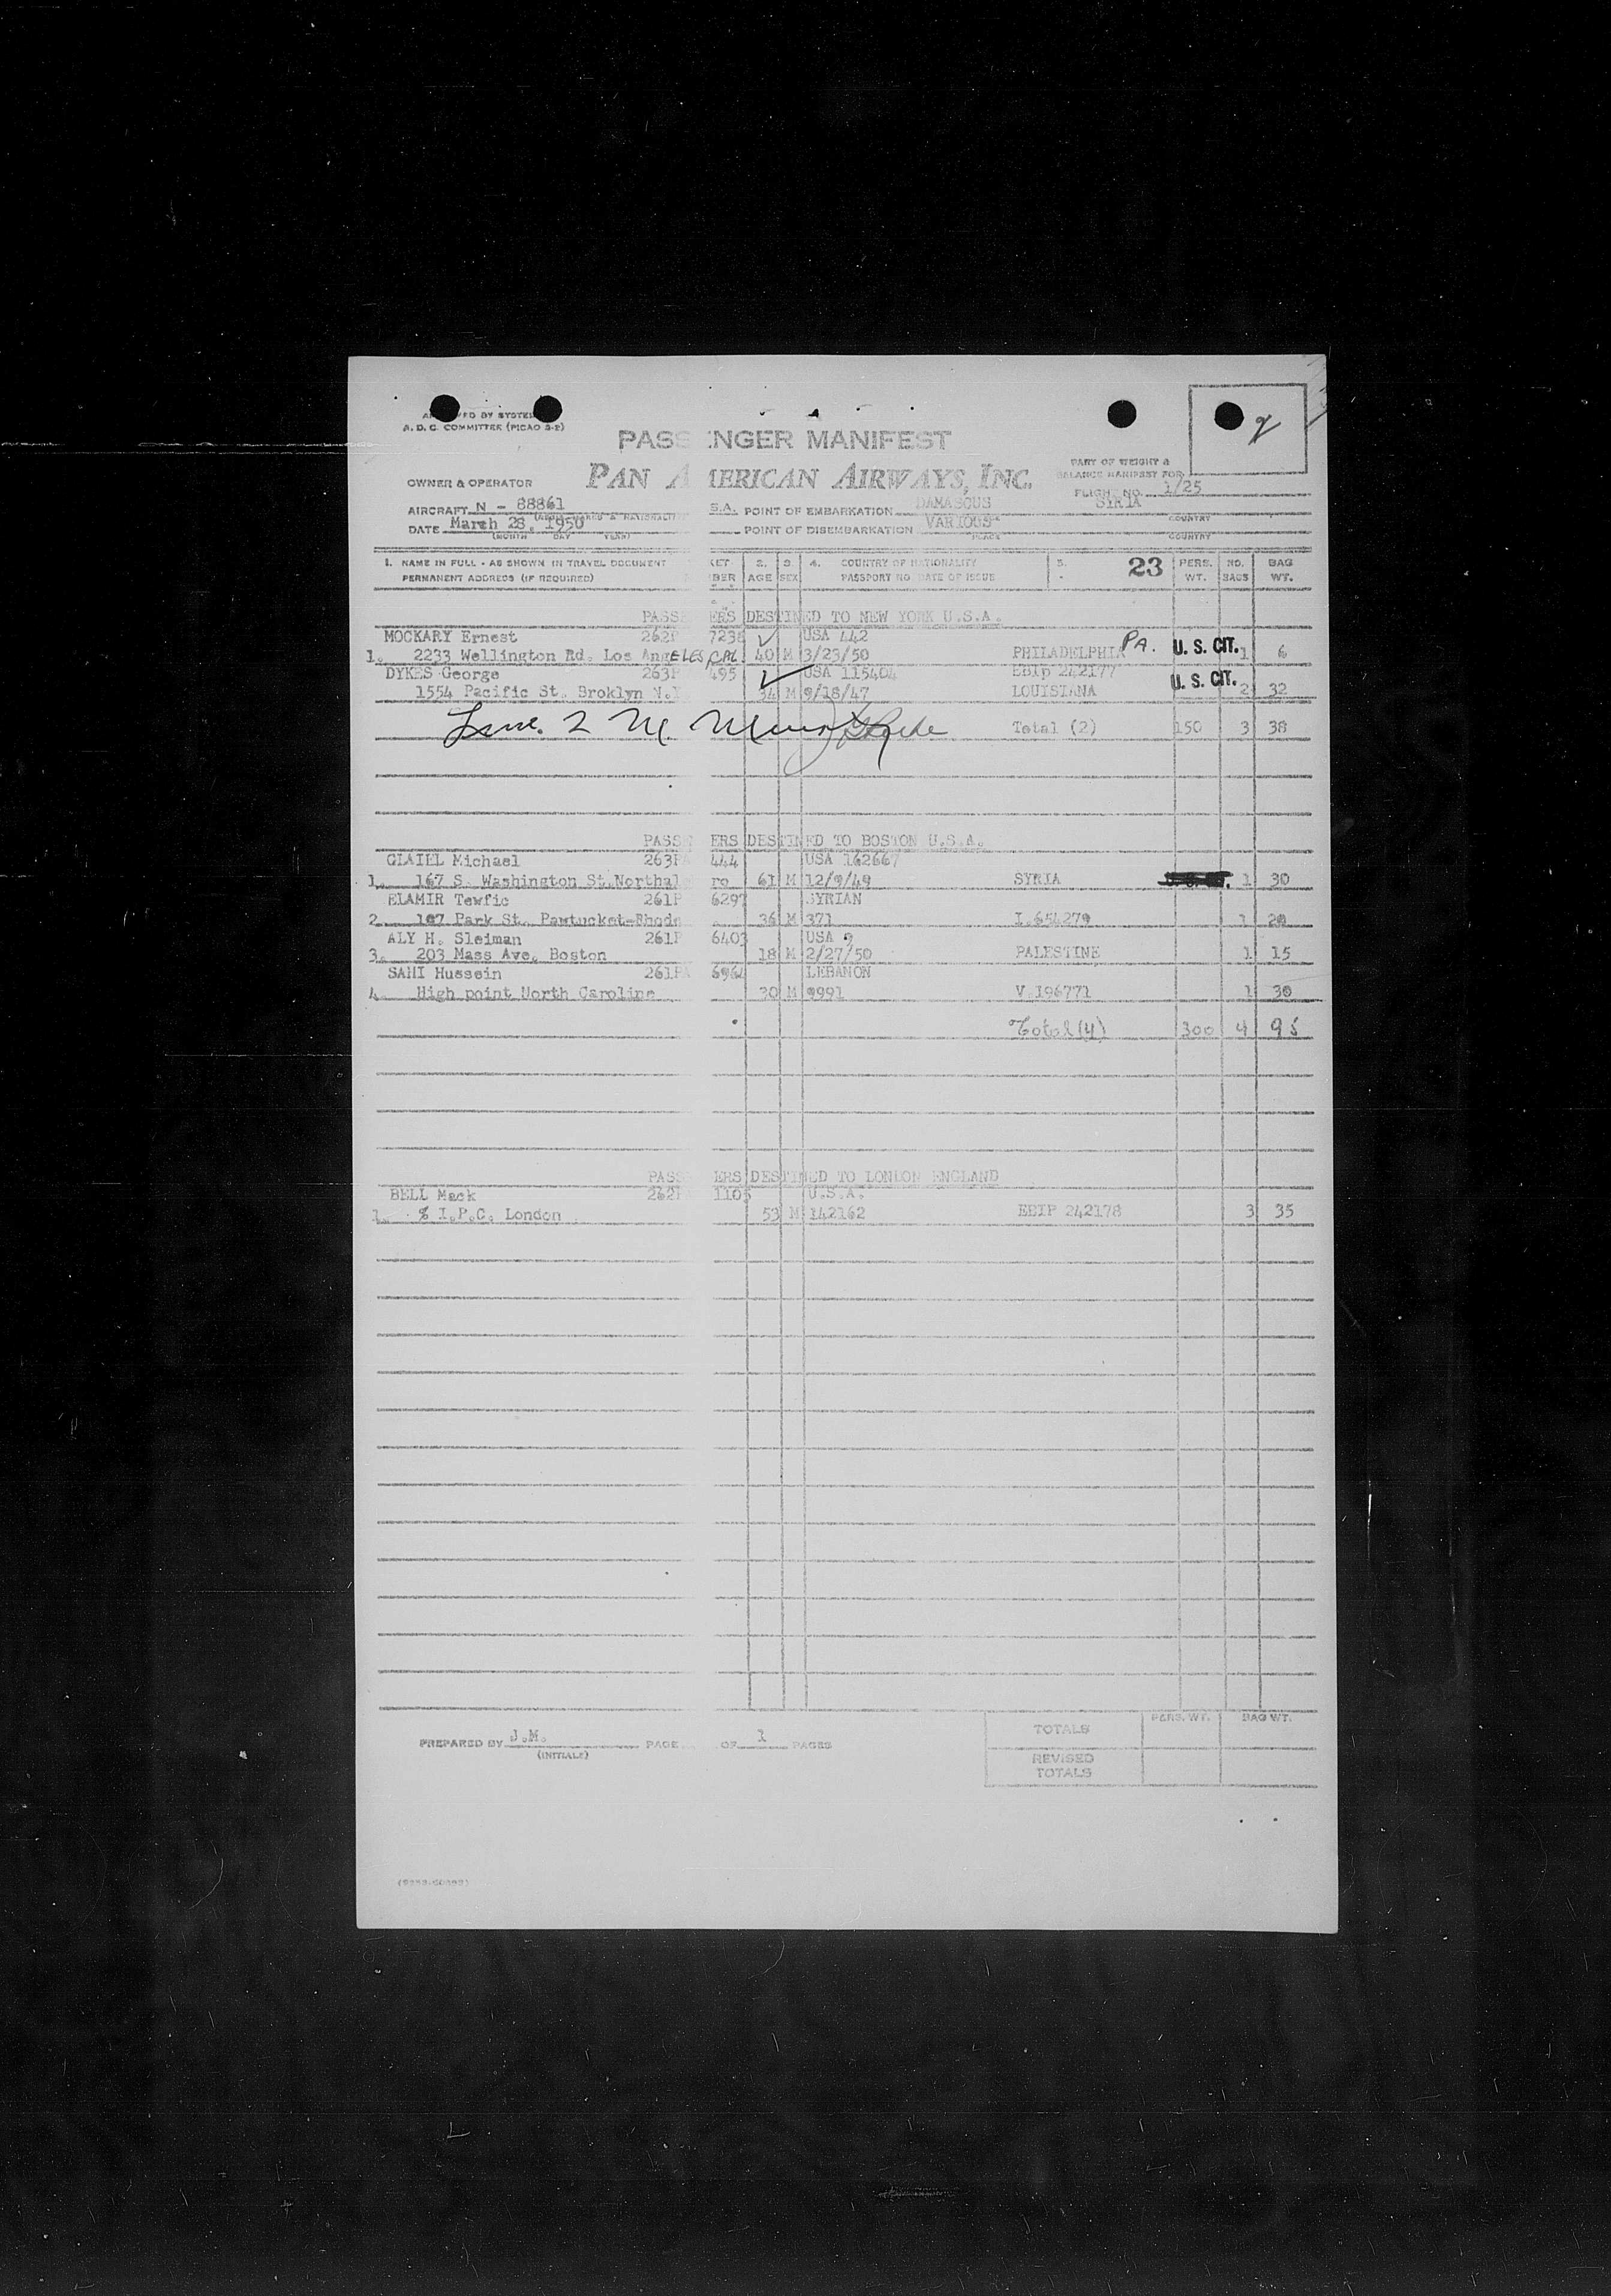 A. D. C. COMMITTEE (PICAO 3-2)
PASSENGER MANIFEST
PAN AMERICAN AIRWAYS, INC.
PART OF WEIGHT &
BALANCE MANIFEST FOR
OWNER & OPERATOR
FLIGHT NO. 1/25
AIRCRAFT N - 88861 S.A. POINT OF EMBARKATION DAMASCUS SIRIA
COUNTRY
DATE March 28, 1950 POINT OF DISEMBARKATION VARIOUS
(MONTH DAY YEAR) PLACE COUNTRY
1. NAME IN FULL - AS SHOWN IN TRAVEL DOCUMENT KET 2. 3. 4. COUNTRY OF NATIONALITY 5. 23 PERS. NO. BAG
PERMANENT ADDRESS (IF REQUIRED) BER AGE SEX PASSPORT NO DATE OF ISSUE WT. BAGS WT.
PASSE ERS DESTINED TO NEW YORK U.S.A.
MOCKARY Ernest 262P 7238 USA 442
1. 2233 Wellington Rd. Los AngELES, CAL. 40 M 3/23/50 PHILADELPHIA PA. U. S. CIT. 1 6
DYKES George 263P 495 USA 115404 EBIp 242177
1554 Pacific St. Broklyn N.Y 34 M 9/18/47 LOUISIANA U. S. CIT. 2 32
Total (2) 150 3 38
PASSE ERS DESTINED TO BOSTON U.S.A.
GLAIEL Michael 263PA 444 USA 162667
1. 167 S. Washington St.Northal ro 61 M 12/9/49 SYRIA 1 30
ELAMIR Tewfic 261P 6297 SYRIAN
2. 107 Park St. Pawtucket-Rhode 36 M 371 I.654279 1 20
ALY H. Sleiman 261P 6403 USA 9
3. 203 Mass Ave. Boston 18 M 2/27/50 PALESTINE 1 15
SAHI Hussein 261PA 6964 LEBANON
4. High point North Caroline 30 M 9991 V 196771 1 30
Total (4) 300 4 95
PASS ERS DESTINED TO LONDON ENGLAND
BELL Mack 262P 1105 U.S.A.
1. % I.P.C. London 53 M 142162 EBIP 242178 3 35
PERS. WT. BAG WT.
PREPARED BY J.M. PAGE OF 1 PAGES TOTALS
(INITIALS)
REVISED
TOTALS